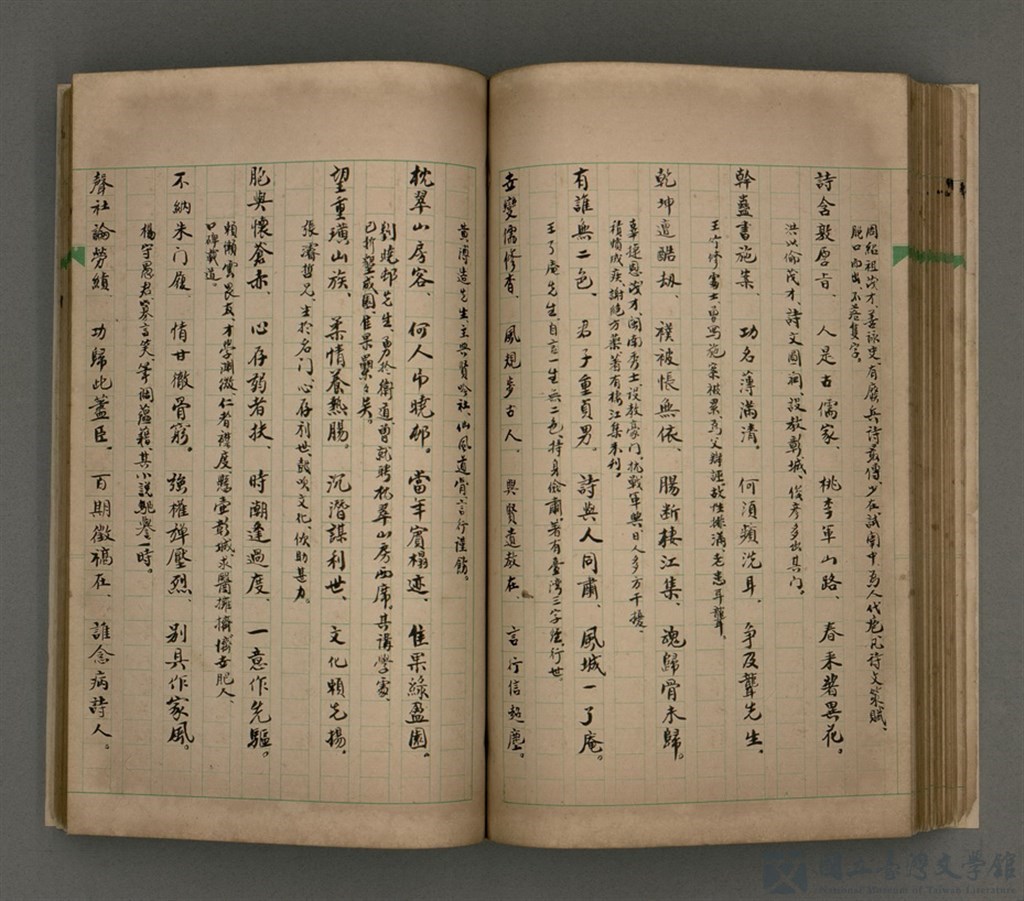 周紹祖茂才、善詠史、有廢兵詩最傳、少在試闈中、為人代庖凡詩文策賦、
脫口而出、不落隻字。
詩含敦厚旨、人是古儒家、桃李軍山路、春來發異花。
洪以倫茂才、詩文圓潤、設教彰城、俊彥多出其門。
幹蠱書施案、功名薄滿清。何須頻洗耳、爭及聾先生、
王  修  士曾寫施案被累、為父辯誣故性  滿、老患耳聾。
乾坤遭酷劫、襆被悵無依、腸斷棲江集、魂歸骨未歸。
秦 恩茂才、閩南秀士設教豪門、抗戰軍興、日人多方干擾、
積憤成疾、謝絕方藥著有棲江集未刊。
有誰無二色、君子重貞男。詩與人同肅、風城一了庵。
王了庵先生、自言一生無二色、持身俗肅、著有臺灣三字經、行世。
世變儒修省、風規步古人、興賢遺教在、言行信超塵。
黃溥造先生主興賢吟社、仙風道骨言行謹飭。
枕翠山房客、何人弔曉邨。當年賓榻迹、佳果綠盈園。
劉曉邨先生、勇於衛道、曾就聘枕翠山房西席。其講學處、
已折墾成園、佳果纍々矣。
望重璜山族、柔情養熱腸。沉潛謀利世、文化賴先揚、
張濬哲兄、生於名門、心存利世、鼓吹文化、佽助甚力。
胞與懷蒼赤、心存弱者扶、時潮逢過度、一意作先驅。
賴懶雲畏友、才學淵微、仁者襟度、懸壺彰城、求醫擁擠、惟吾肥人、
口碑載道。
不納朱門履、情甘徹骨窮。強權殫壓烈、別具作家風。
楊守愚君寡言笑、筆調蘊藉、其小說馳譽一時。
聲社論勞績、功歸此藎臣。百期徵稿在、誰念病詩人。
國立臺灣文學館
National Museum of Taiwan Literature